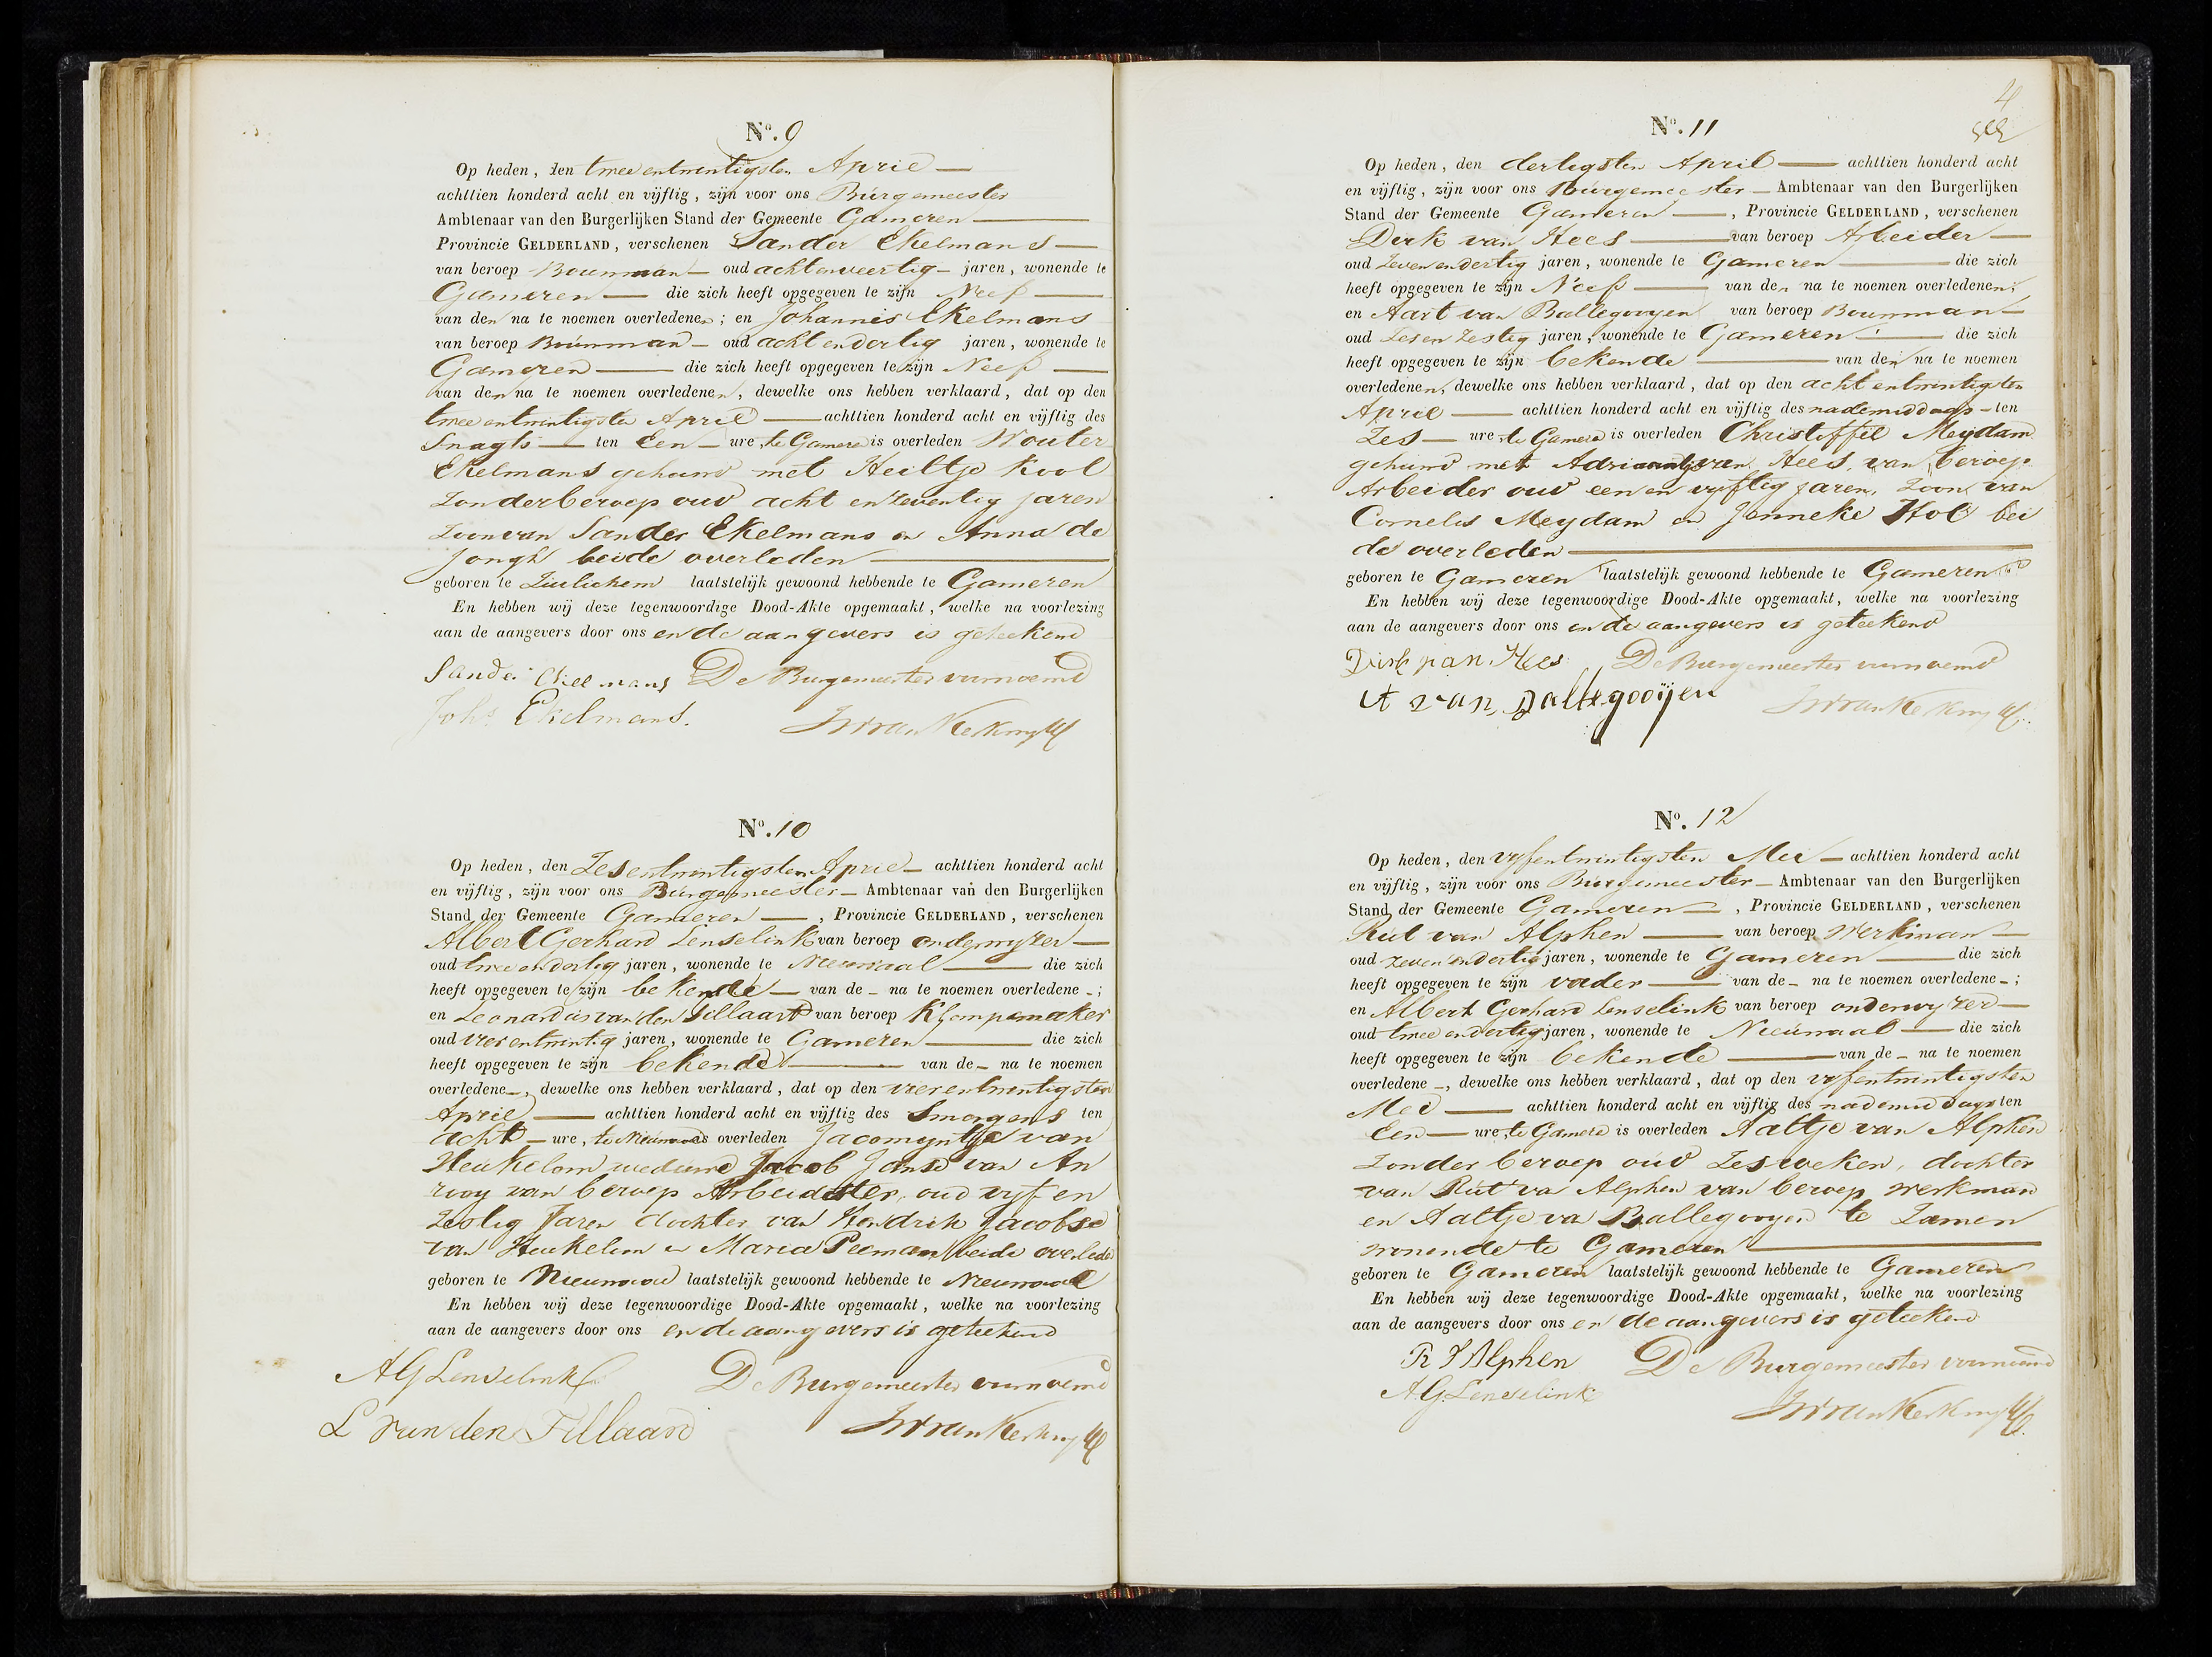 Nº. 9
Op heden, den twee entwintigsten April
achttien honderd acht en vijftig, zijn voor ons Burgemeester
Ambtenaar van den Burgerlijken Stand der Gemeente Gameren
Provincie GELDERLAND, verschenen Sander Ekelmans
van beroep Bouwman oud acht enveertig jaren, wonende te
Gameren die zich heeft opgegeven te zijn Neef
van den na te noemen overledenen; en Johannis Ekelmans
van beroep Bouwman oud acht en dertig jaren, wonende te
Gameren die zich heeft opgegeven te zijn Neef
van den na te noemen overledenen, dewelke ons hebben verklaard, dat op den
twee entwintigsten April achttien honderd acht en vijftig des
Snagts ten Een ure, te Gameren is overleden Wouter
Ekelmans gehuwd met Heiltje Kool
Zonder beroep oud acht en zeventig jaren
Zoon van Sander Ekelmans en Anna de
Jongh beide overleden
geboren te Zuilichem laatstelijk gewoond hebbende te Gameren
En hebben wij deze tegenwoordige Dood-Akte opgemaakt, welke na voorlezing
aan de aangevers door ons en de aangevers is geteekend
Sander Ekelmans De Burgemeester voornoemd
Johs Ekelmans.
Nº. 10
Op heden, den Zes entwintigsten April achttien honderd acht
en vijftig, zijn voor ons Burgemeester Ambtenaar van den Burgerlijken
Stand der Gemeente Gameren, Provincie GELDERLAND, verschenen
Albert Gerhard Lenselink van beroep onderwyzer
oud twee en dertig jaren, wonende te Nieuwaal die zich
heeft opgegeven te zijn bekende van de na te noemen overledene;
en Leonardus van den Tillaard van beroep Klompemaker
oud vier entwintig jaren, wonende te Gameren die zich
heeft opgegeven te zijn bekende van de na te noemen
overledene, dewelke ons hebben verklaard, dat op den vier entwintigsten
April achttien honderd acht en vijftig des Smorgens ten
acht ure, te Nieuwaal is overleden Jacomyntje van
Heukelom weduwe Jacob Janse van An
rooy van beroep Arbeidster, oud vyf en
Zestig Jaren dochter van Hendrik Jacobse
van Heukelom en Maria Peeman beide overleden
geboren te Nieuwaal laatstelijk gewoond hebbende te Nieuwaal
En hebben wij deze tegenwoordige Dood-Akte opgemaakt, welke na voorlezing
aan de aangevers door ons en de aangevers is geteekend
AG Lenselink De Burgemeester voornoemd
L van den Tillaard
4
Nº. 11
Op heden, den dertigsten April achttien honderd acht
en vijftig, zijn voor ons Burgemeester Ambtenaar van den Burgerlijken
Stand der Gemeente Gameren, Provincie GELDERLAND, verschenen
Dirk van Hees van beroep Arbeider
oud Zeven en dertig jaren, wonende te Gameren die zich
heeft opgegeven te zijn Neef van den na te noemen overledenen;
en Aart van Ballegooyen van beroep Bouwman
oud Zes en Zestig jaren, wonende te Gameren die zich
heeft opgegeven te zijn bekende van den na te noemen
overledenen, dewelke ons hebben verklaard, dat op den acht entwintigsten
April achttien honderd acht en vijftig des nademiddags ten
Zes ure, te Gameren is overleden Christoffel Meydam
gehuwd met Adriaantje van Hees, van beroep
Arbeider oud een en vyftig jaren, Zoon van
Cornelis Meydam en Janneke Hol bei
de overleden
geboren te Gameren laatstelijk gewoond hebbende te Gameren
En hebben wij deze tegenwoordige Dood-Akte opgemaakt, welke na voorlezing
aan de aangevers door ons en de aangevers is geteekend
Dirk van Hees De Burgemeester voornoemd
A van Ballegooijen
Nº. 12
Op heden, den vyfentwintigsten Mei achttien honderd acht
en vijftig, zijn voor ons Burgemeester Ambtenaar van den Burgerlijken
Stand der Gemeente Gameren, Provincie GELDERLAND, verschenen
Rut van Alphen van beroep Werkman
oud zeven en dertig jaren, wonende te Gameren die zich
heeft opgegeven te zijn vader van de na te noemen overledene;
en Albert Gerhard Lenselink van beroep onderwyzer
oud twee en dertig jaren, wonende te Nieuwaal die zich
heeft opgegeven te zijn bekende van de na te noemen
overledene, dewelke ons hebben verklaard, dat op den vyfentwintigsten
Mei achttien honderd acht en vijftig des nademiddags ten
Een ure, te Gameren is overleden Aaltje van Alphen
Zonder beroep oud Zes weken, dochter
van Rut va Alphen van beroep werkman
en Aaltje va Ballegooyen te Zamen
wonende te Gameren
geboren te Gameren laatstelijk gewoond hebbende te Gameren
En hebben wij deze tegenwoordige Dood-Akte opgemaakt, welke na voorlezing
aan de aangevers door ons en de aangevers is geteekend
R V Alphen De Burgemeester voornoemd
A.G. Lenselink